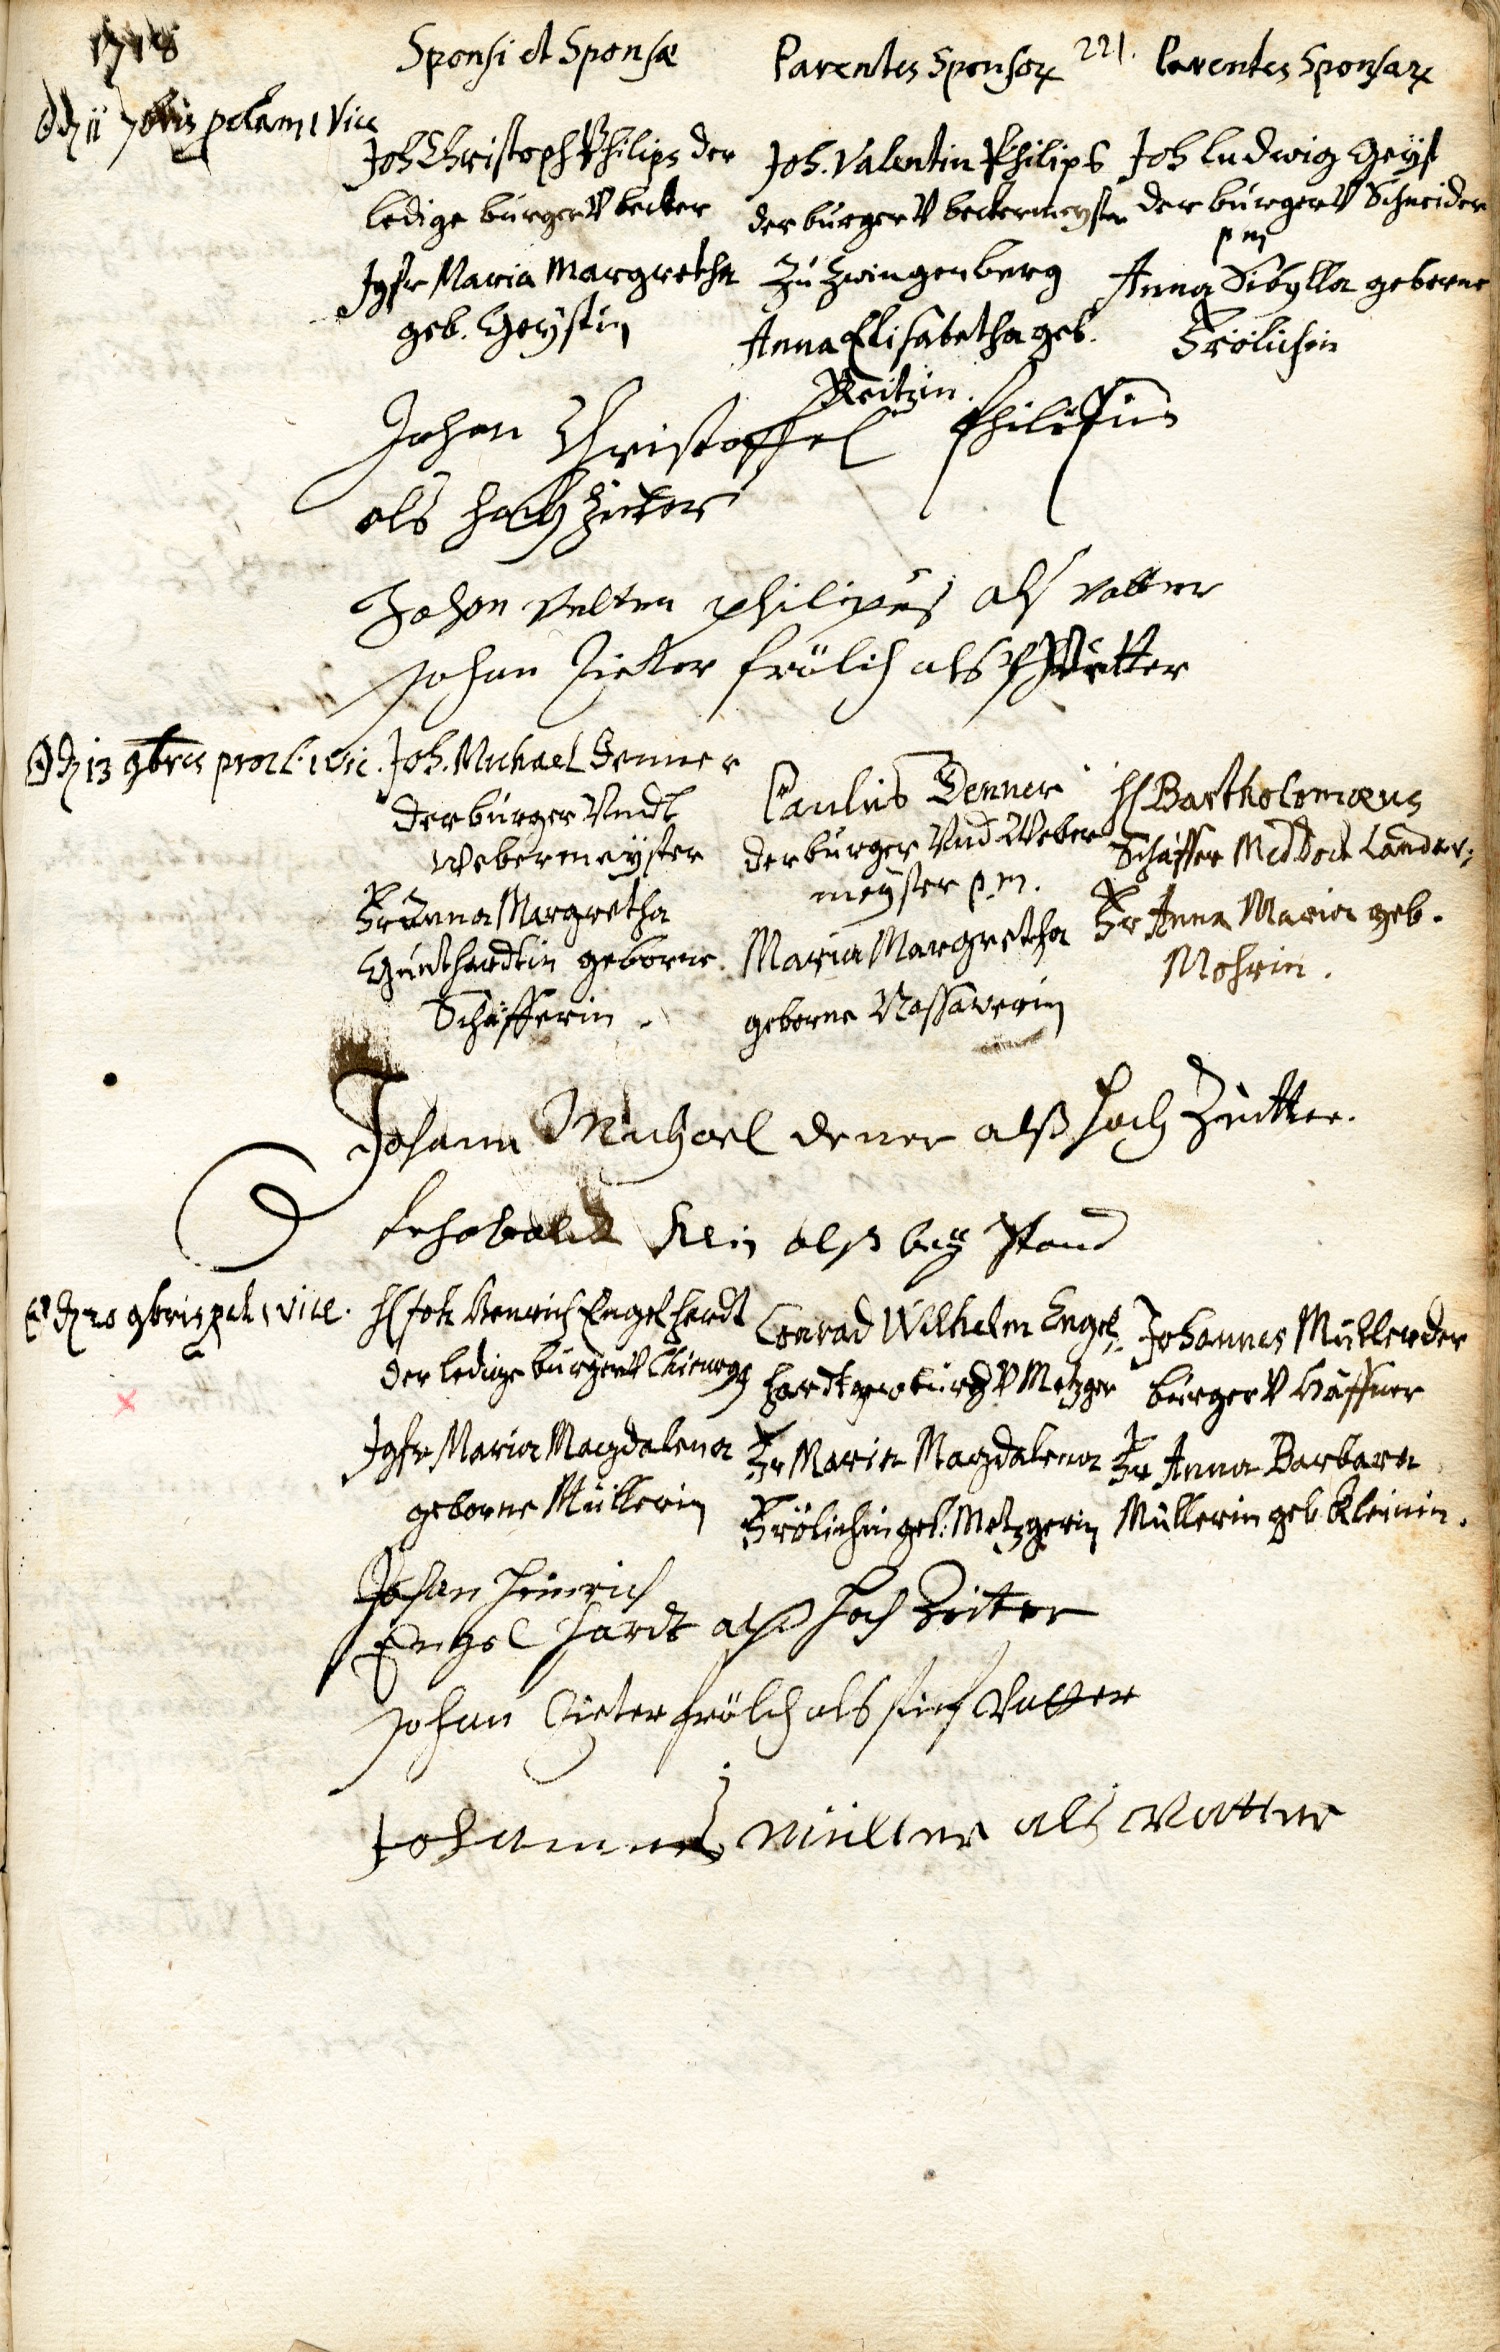 1718
Sponsi et Sponsæ
Parentes Sponsor
221.
Parentes Sponsar
11 7bris 1 Vice
Joh Christoph Philips der
ledige burger V becker
Jgfr Maria Margretha
geb. Geystin
Joh. Valentin Philips
der burger V beckermeyster
Zu Zwingenberg
Anna Elisabetha geb.
Reitzin.
Joh Ludwig Geyst
der burger V Schneider
pm
Anna Sibylla geborne
Frölichin
Johan Christoffel Philipus
als hoch Zeiter
Johan Velten philipus als vatter
Johan Pietter frölich als Vetter
13 9bris procl. 1 vic.
Joh. Michael Denner
der burger Vndt
Webermeyster
Fr Anna Margretha
Gunthardtin geborne
Schäfferin.
Paulus Denner
der burger Vnd Weber
meyster p.m.
Maria Margretha
geborne Nassawerin
H Bartholomæus
Schäffer Med Doct Landav;
Fr Anna Maria geb.
Mohrin.
Johann Michael dener alß hoch Zeitter.
Klein alß bey stand
20 9bris 1 vice.
H Joh Henrich Engelhardt
der ledige burger V Chirurg
Jgfr Maria Magdalena
geborne Müllerin
Conrad Wilhelm Engel,
hardt V Metzger
Fr Maria Magdalena
Frölichin geb: Metzgerin
Johannes Müller der
burger V Häffner
Fr Anna Barbara
Müllerin geb. Kleinin.
Johan Heinrich
Engel hardt alß hoch Zeiter
Johan Pieter frölich als stief Vatter
Johannes müller als Vatter